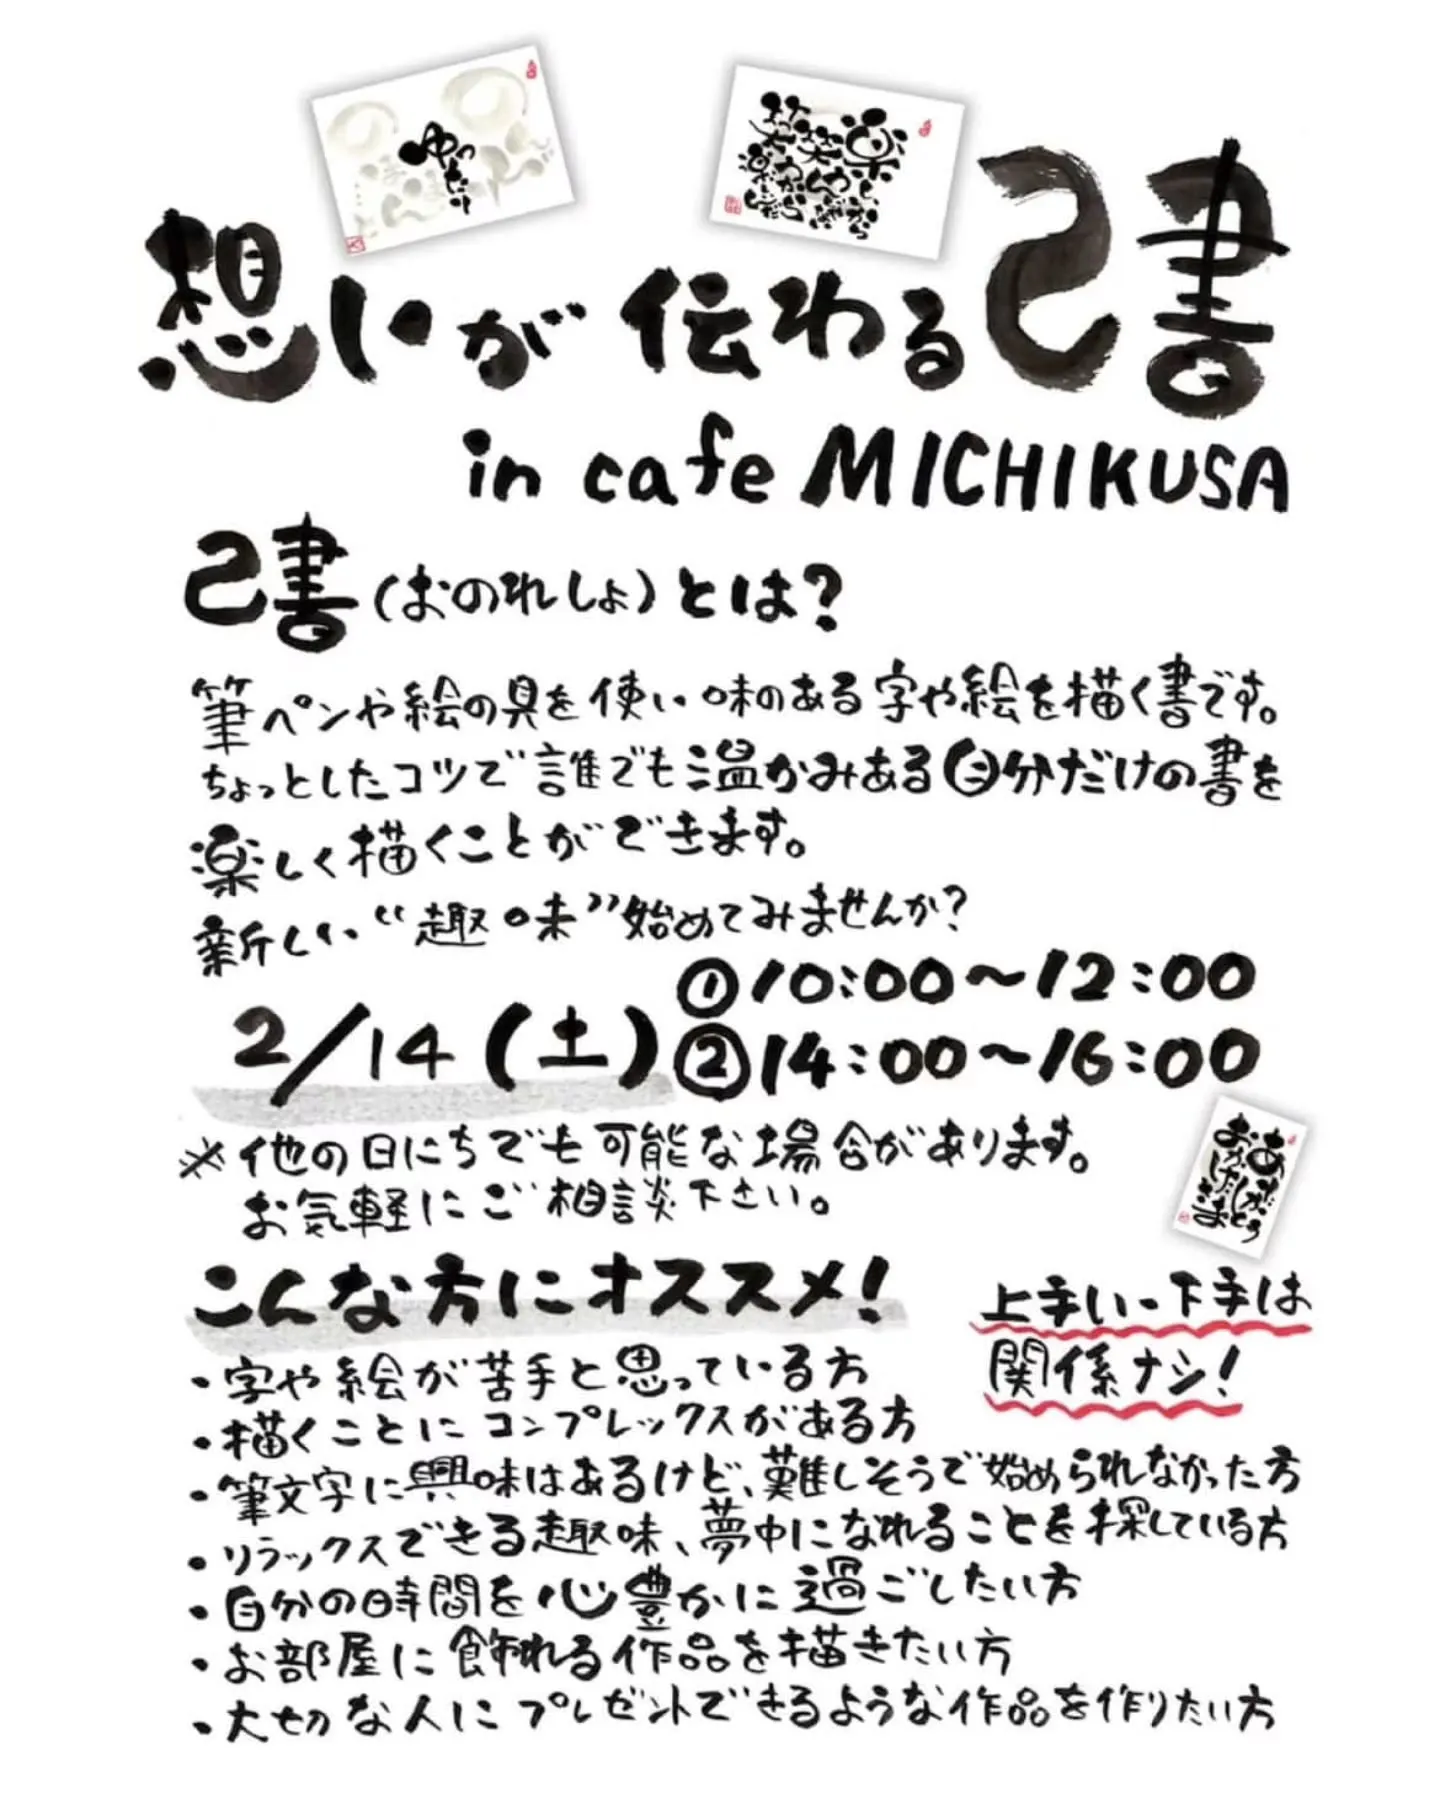 ゆったり
想いが伝わる己書
in cafe MICHIKUSA
己書(おのれしょ)とは?
筆ペンや絵の具を使い味のある字や絵を描く書です。
ちょっとしたコツで誰でも温かみある自分だけの書を
楽しく描くことができます。
新しい“趣味”始めてみませんか?
2/14(土)
①10:00〜12:00
②14:00〜16:00
※他の日にちでも可能な場合があります。
お気軽にご相談下さい。
ありがとう
おかげさま
こんな方にオススメ!
上手い・下手は
関係ナシ!
・字や絵が苦手と思っている方
・描くことにコンプレックスがある方
・筆文字に興味はあるけど、難しそうで始められなかった方
・リラックスできる趣味、夢中になれることを探している方
・自分の時間を心豊かに過ごしたい方
・お部屋に飾れる作品を描きたい方
・大切な人にプレゼントできるような作品を作りたい方